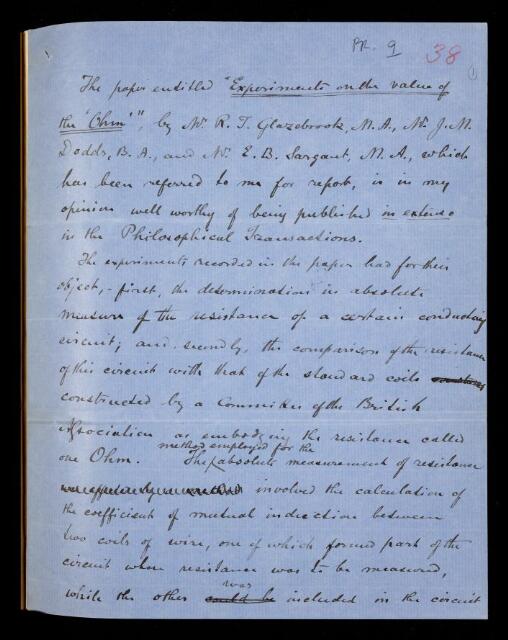 PR. 9
38
1
The paper entitled "Experiments on the value of
the 'Ohm'", by Mr R. T. Glazebrook, M.A., Mr J. M.
Dodds, B.A., and Mr E. B. Sargant, M.A., which
has been referred to me for report, is in my
opinion well worthy of being published in extenso
in the Philosophical Transactions.
The experiments recorded in the paper had for their
object,- first, the determination in absolute
measure of the resistance of a certain conducting
circuit; and secondly, the comparison of the resistance
of this circuit with that of the standard coils
constructed by a Committee of the British
Association as embodying the resistance called
one Ohm. The method employed for the absolute measurement of resistance
involved the calculation of
the coefficient of mutual induction between
two coils of wire, one of which formed part of the
circuit whose resistance was to be measured,
while the other could be was included in the circuit